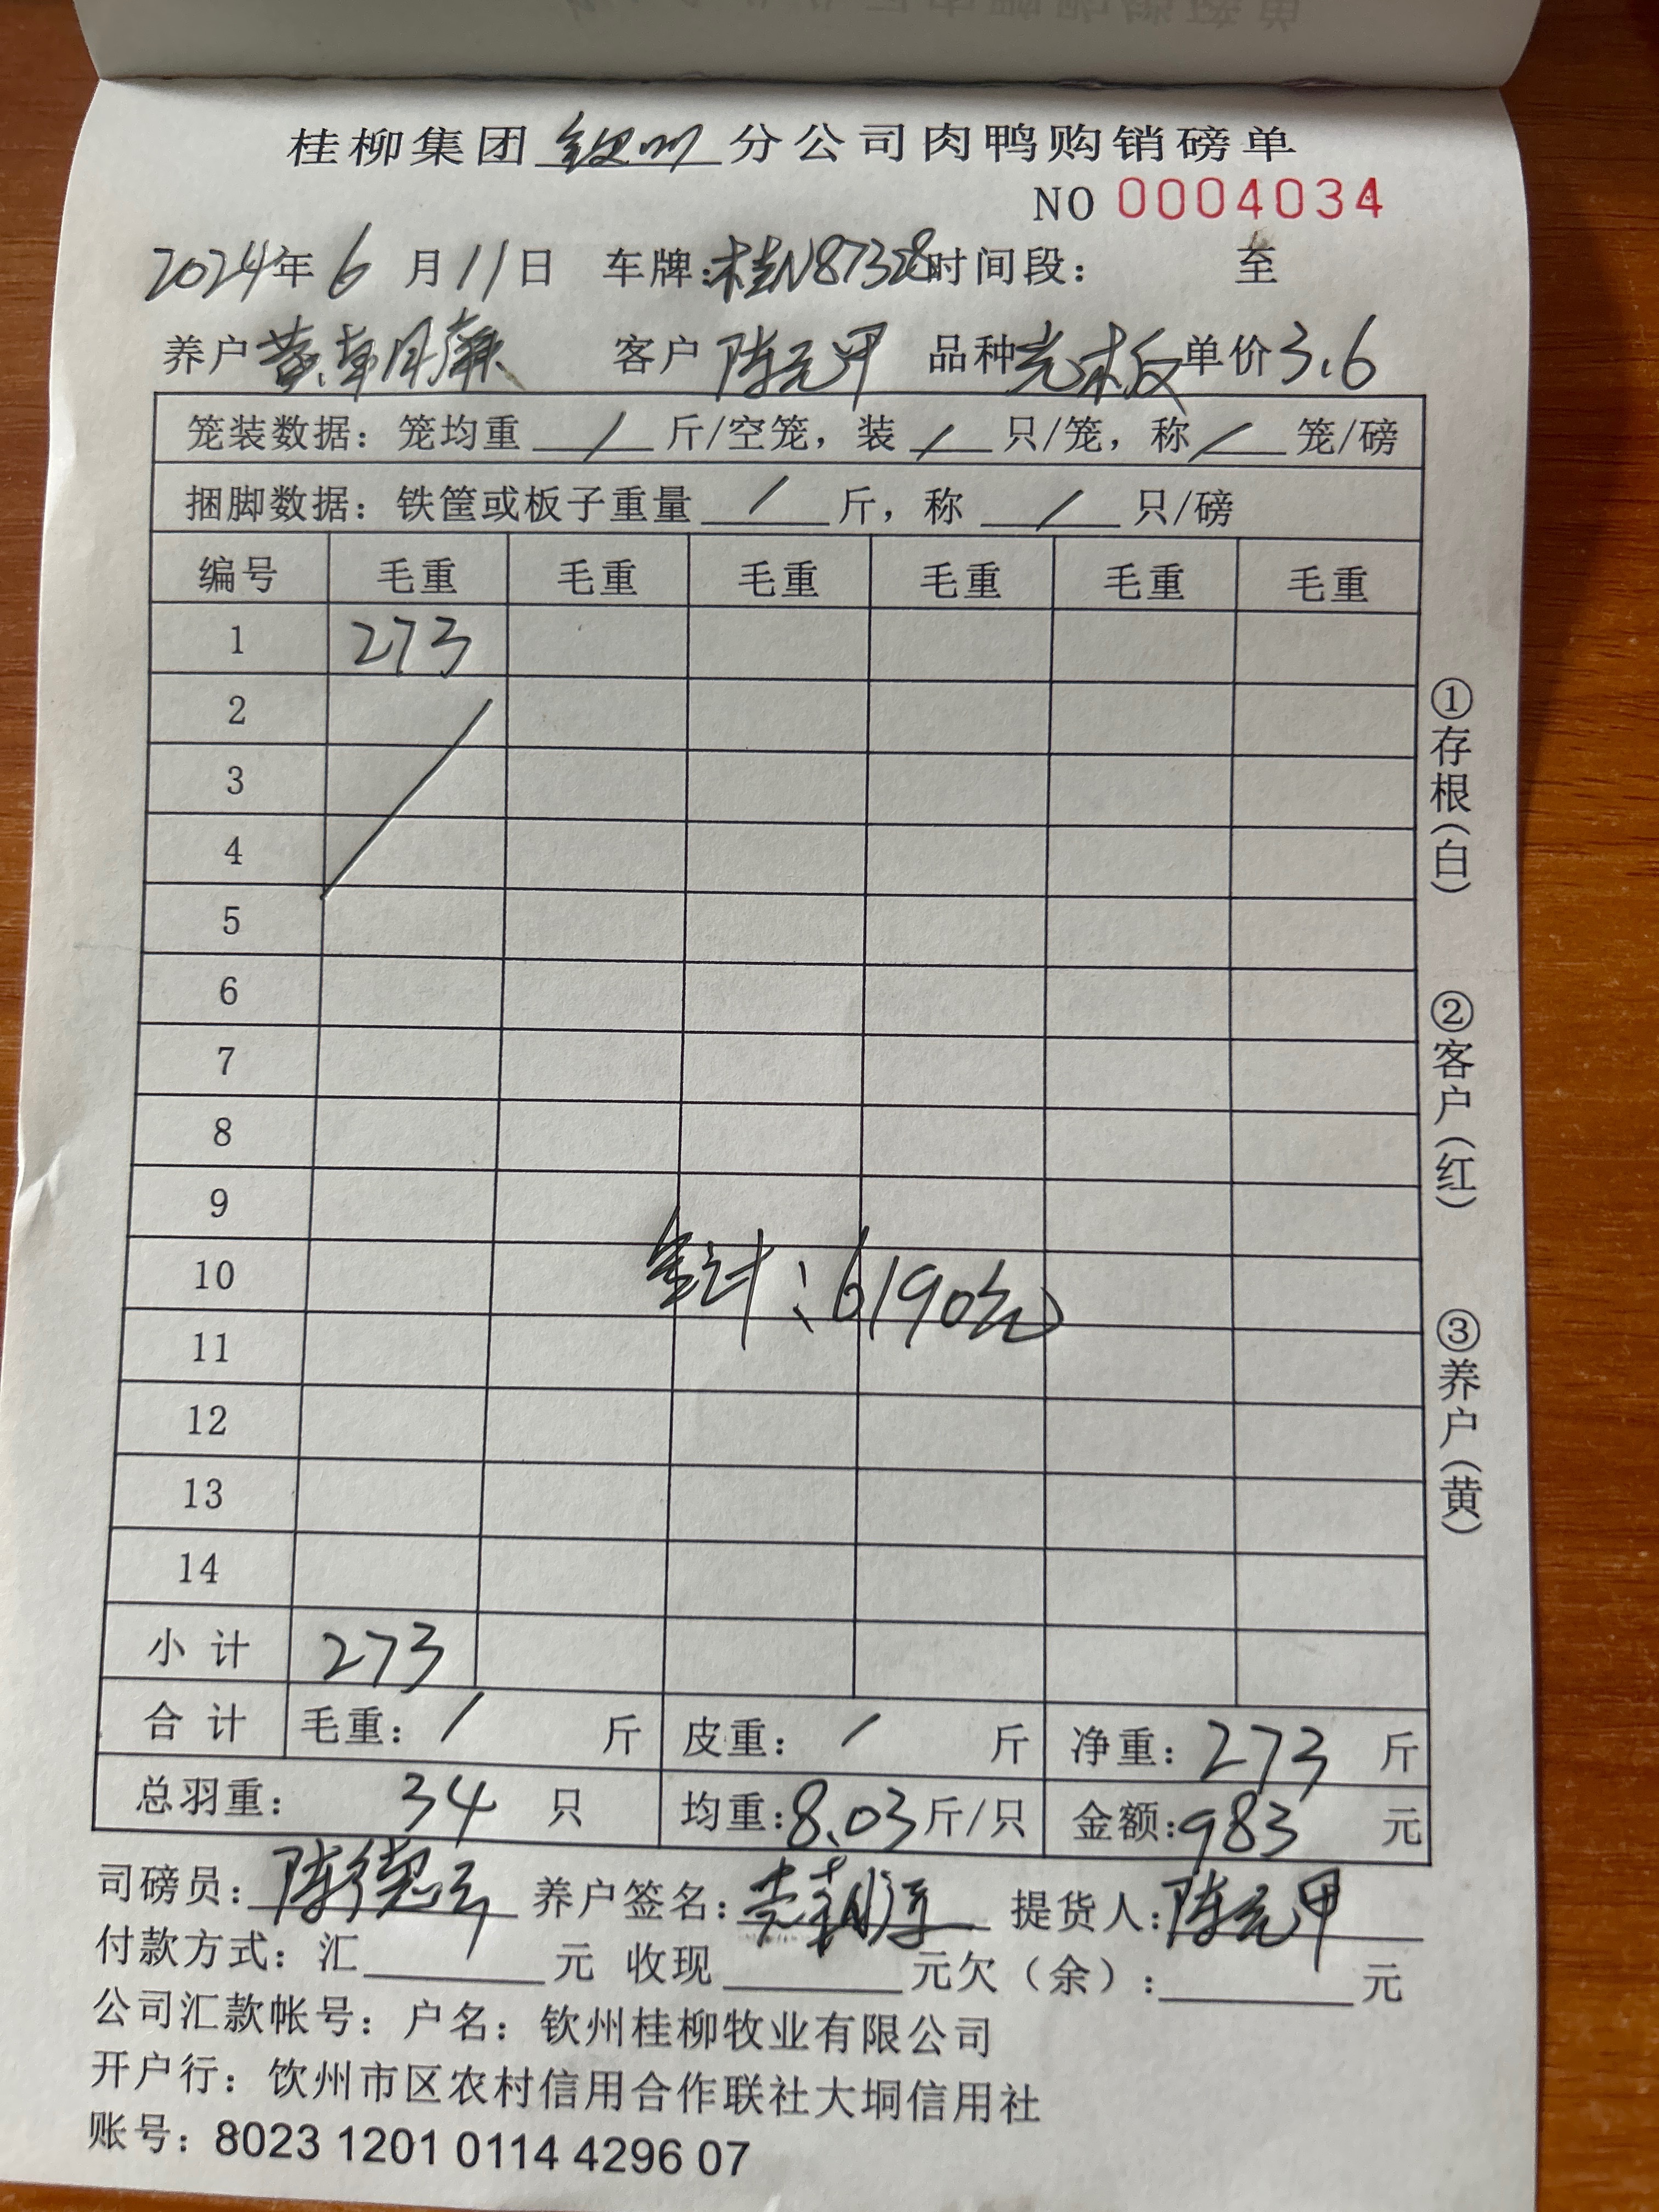 桂柳集团钦州分公司肉鸭购销磅单
NO 0004034
2024年6月11日 车牌:桂N87328时间段: 至
养户黄朝 客户陈元甲 品种光板单价3.6
笼装数据: 笼均重 / 斤/空笼, 装 / 只/笼, 称 / 笼/磅
捆脚数据: 铁筐或板子重量 / 斤, 称 / 只/磅
编号 毛重 毛重 毛重 毛重 毛重 毛重
1 273
2
3
4
5
6
7
8
9
10
计:6190元
11
12
13
14
小计 273
合计 毛重: / 斤 皮重: / 斤 净重: 273 斤
总羽重: 34 只 均重:8.03斤/只 金额:983 元
司磅员: 陈德云 养户签名: 提货人:陈元甲
付款方式: 汇 元 收现 元欠(余): 元
公司汇款帐号: 户名: 钦州桂柳牧业有限公司
开户行: 钦州市区农村信用合作联社大垌信用社
账号: 8023 1201 0114 4296 07
①存根(白)
②客户(红)
③养户(黄)